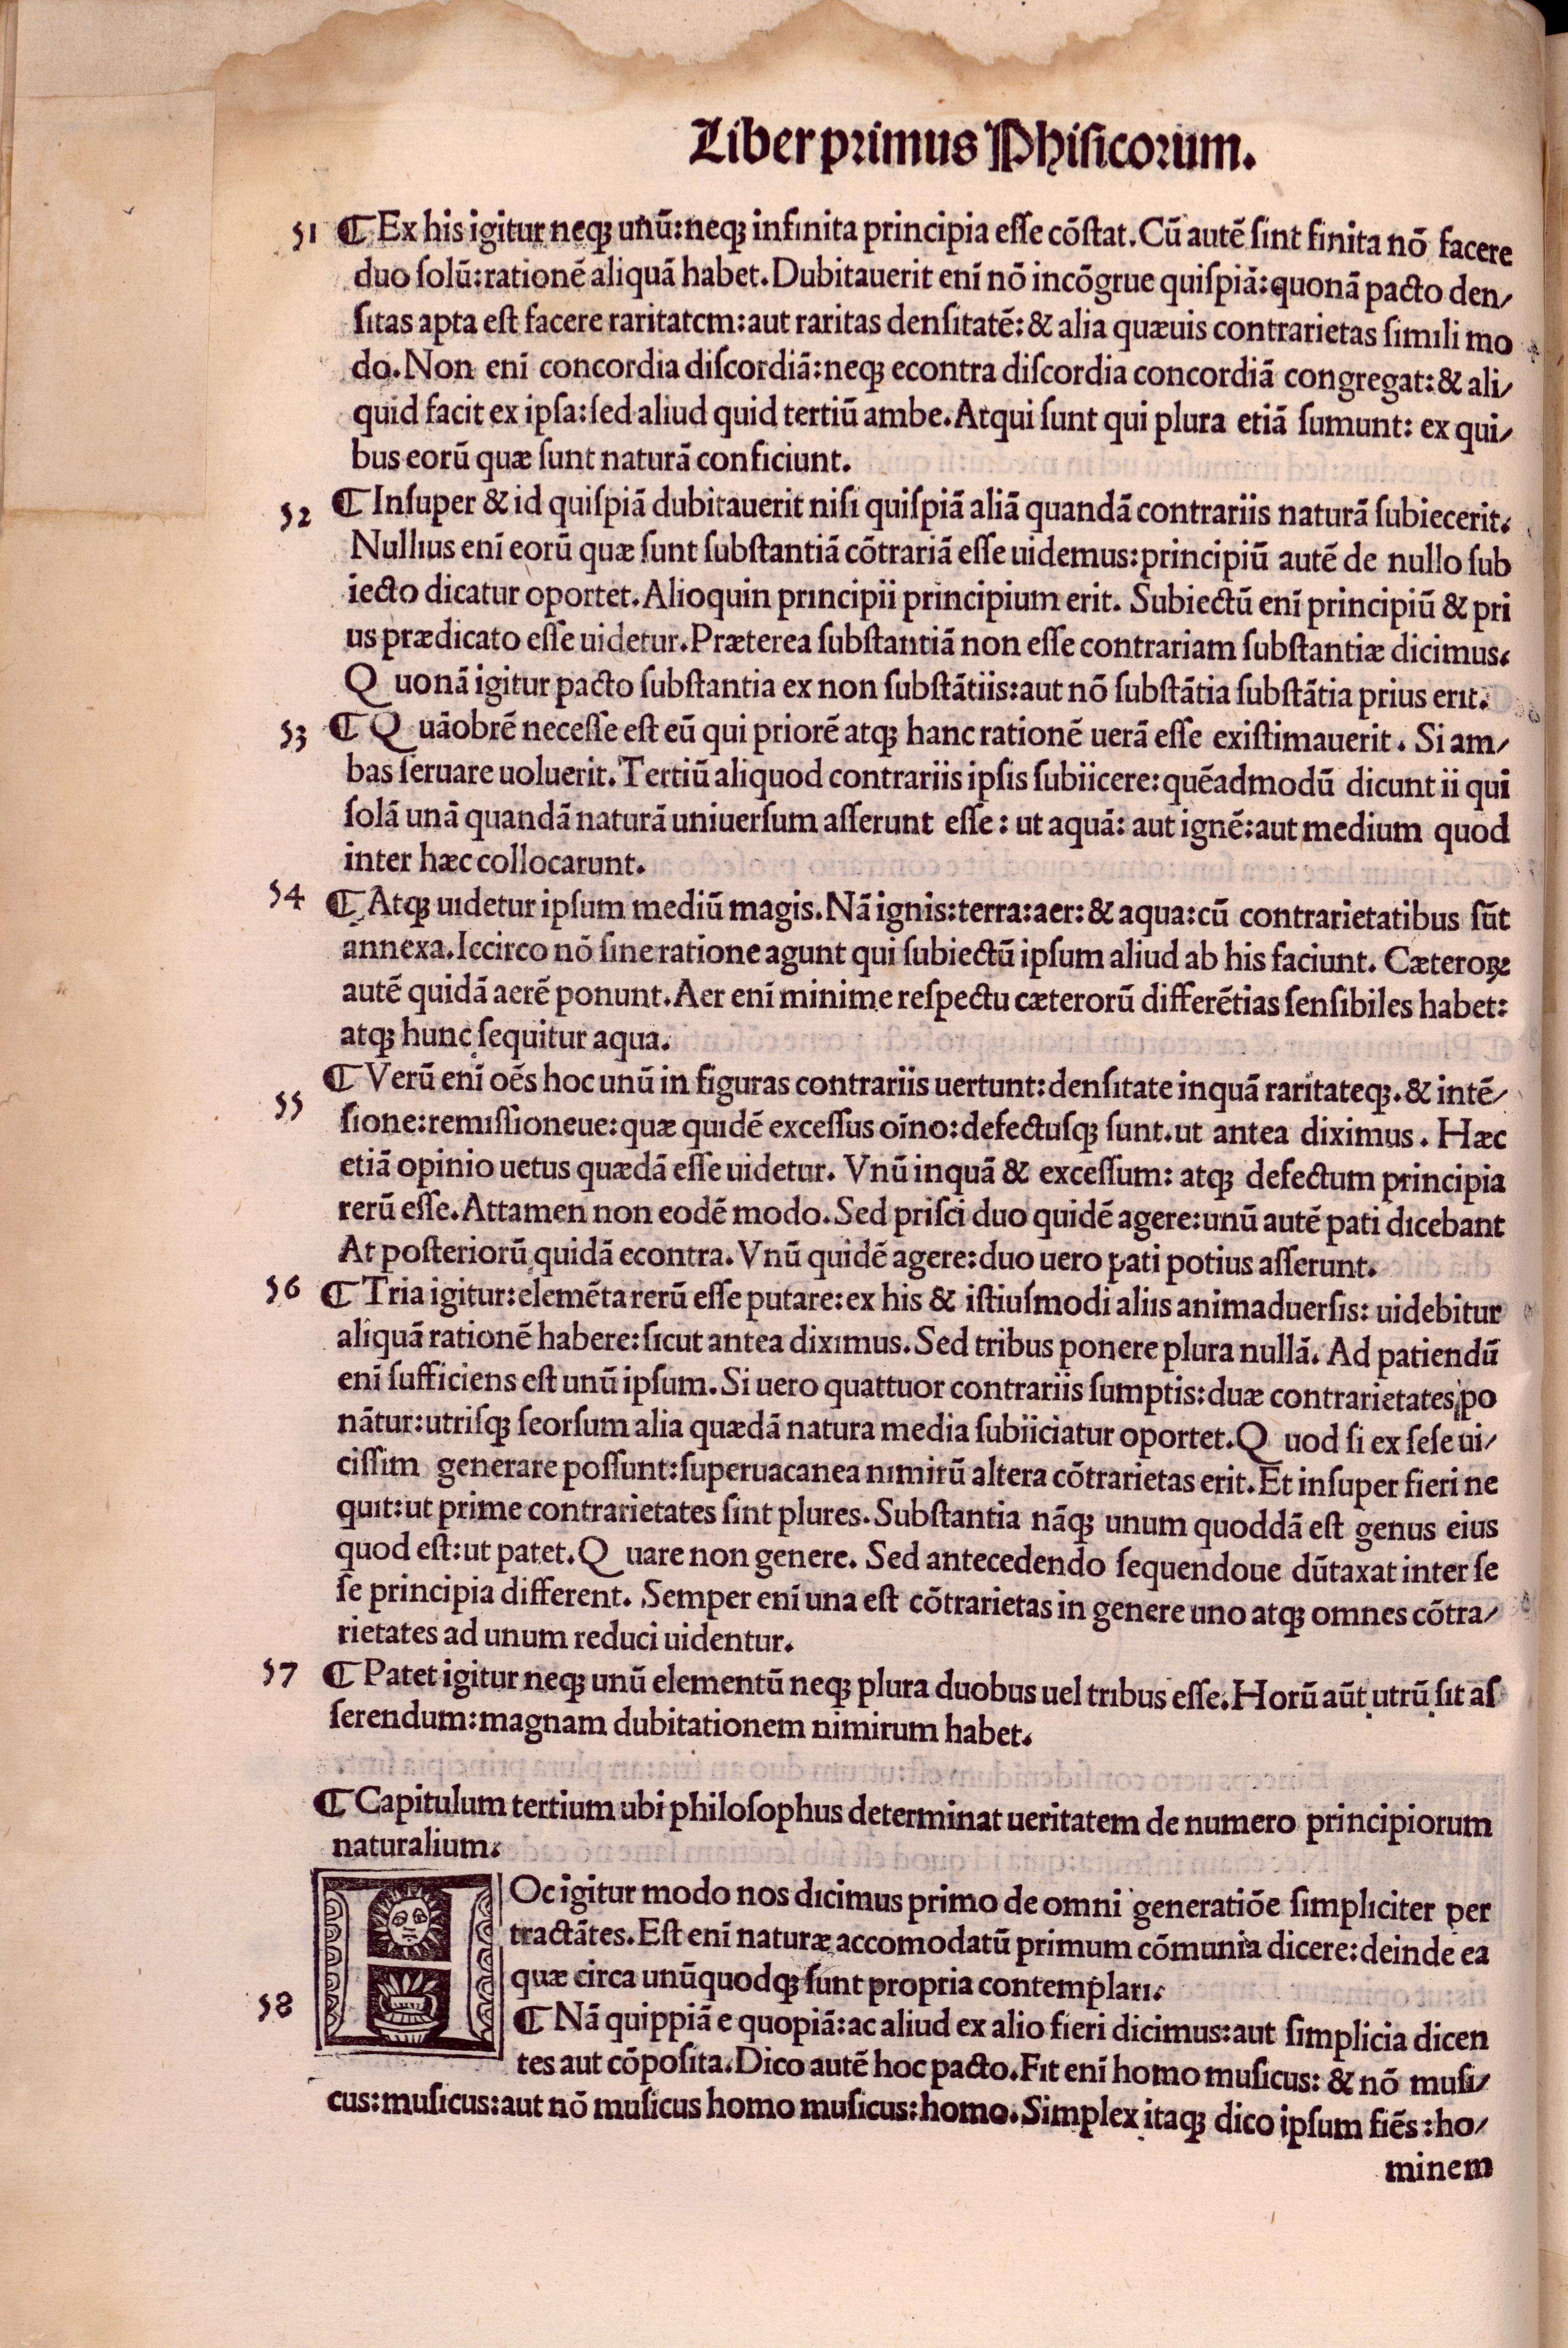 Liber primus Phisicorum.
51 ¶ Ex his igitur neqꝫ unū: neqꝫ infinita principia esse cōstat. Cū autē sint finita nō facere
duo solū: rationē aliquā habet. Dubitauerit enī nō incōgrue quispiā: quonā pacto den/
sitas apta est facere raritatem: aut raritas densitatē: & alia quæuis contrarietas simili mo
do. Non enī concordia discordiā: neqꝫ econtra discordia concordiā congregat: & ali/
quid facit ex ipsa: sed aliud quid tertiū ambe. Atqui sunt qui plura etiā sumunt: ex qui/
bus eorū quæ sunt naturā conficiunt.
52 ¶ Insuper & id quispiā dubitauerit nisi quispiā aliā quandā contrariis naturā subiecerit.
Nullius enī eorū quæ sunt substantiā cōtrariā esse uidemus: principiū autē de nullo sub
iecto dicatur oportet. Alioquin principii principium erit. Subiectū enī principiū & pri
us prædicato esse uidetur. Præterea substantiā non esse contrariam substantiæ dicimus.
Quonā igitur pacto substantia ex non substātiis: aut nō substātia substātia prius erit.
53 ¶ Quāobrē necesse est eū qui priorē atqꝫ hanc rationē uerā esse existimauerit. Si am/
bas seruare uoluerit. Tertiū aliquod contrariis ipsis subiicere: quēadmodū dicunt ii qui
solā unā quandā naturā uniuersum asserunt esse: ut aquā: aut ignē: aut medium quod
inter hæc collocarunt.
54 ¶ Atqꝫ uidetur ipsum mediū magis. Nā ignis: terra: aer: & aqua: cū contrarietatibus sūt
annexa. Iccirco nō sine ratione agunt qui subiectū ipsum aliud ab his faciunt. Cæteroꝝ
autē quidā aerē ponunt. Aer enī minime respectu cæterorū differētias sensibiles habet:
atqꝫ hunc sequitur aqua.
55 ¶ Verū enī oēs hoc unū in figuras contrariis uertunt: densitate inquā raritateqꝫ. & intē/
sione: remissioneue: quæ quidē excessus oīno: defectusqꝫ sunt. ut antea diximus. Hæc
etiā opinio uetus quædā esse uidetur. Vnū inquā & excessum: atqꝫ defectum principia
rerū esse. Attamen non eodē modo. Sed prisci duo quidē agere: unū autē pati dicebant
At posteriorū quidā econtra. Vnū quidē agere: duo uero pati potius asserunt.
56 ¶ Tria igitur: elemēta rerū esse putare: ex his & istiusmodi aliis animaduersis: uidebitur
aliquā rationē habere: sicut antea diximus. Sed tribus ponere plura nullā. Ad patiendū
enī sufficiens est unū ipsum. Si uero quattuor contrariis sumptis: duæ contrarietates po
nātur: utrisqꝫ seorsum alia quædā natura media subiiciatur oportet. Quod si ex sese ui/
cissim generare possunt: superuacanea nimirū altera cōtrarietas erit. Et insuper fieri ne
quit: ut prime contrarietates sint plures. Substantia nāqꝫ unum quoddā est genus eius
quod est: ut patet. Quare non genere. Sed antecedendo sequendoue dūtaxat inter se
se principia different. Semper enī una est cōtrarietas in genere uno atqꝫ omnes cōtra/
rietates ad unum reduci uidentur.
57 ¶ Patet igitur neqꝫ unū elementū neqꝫ plura duobus uel tribus esse. Horū aūt utrū sit as
serendum: magnam dubitationem nimirum habet.
¶ Capitulum tertium ubi philosophus determinat ueritatem de numero principiorum
naturalium.
HOc igitur modo nos dicimus primo de omni generatiōe simpliciter per
tractātes. Est enī naturæ accomodatū primum cōmunia dicere: deinde ea
quæ circa unūquodqꝫ sunt propria contemplari.
58 ¶ Nā quippiā e quopiā: ac aliud ex alio fieri dicimus: aut simplicia dicen
tes aut cōposita. Dico autē hoc pacto. Fit enī homo musicus: & nō musi/
cus: musicus: aut nō musicus homo musicus: homo. Simplex itaqꝫ dico ipsum fiēs: ho/
minem